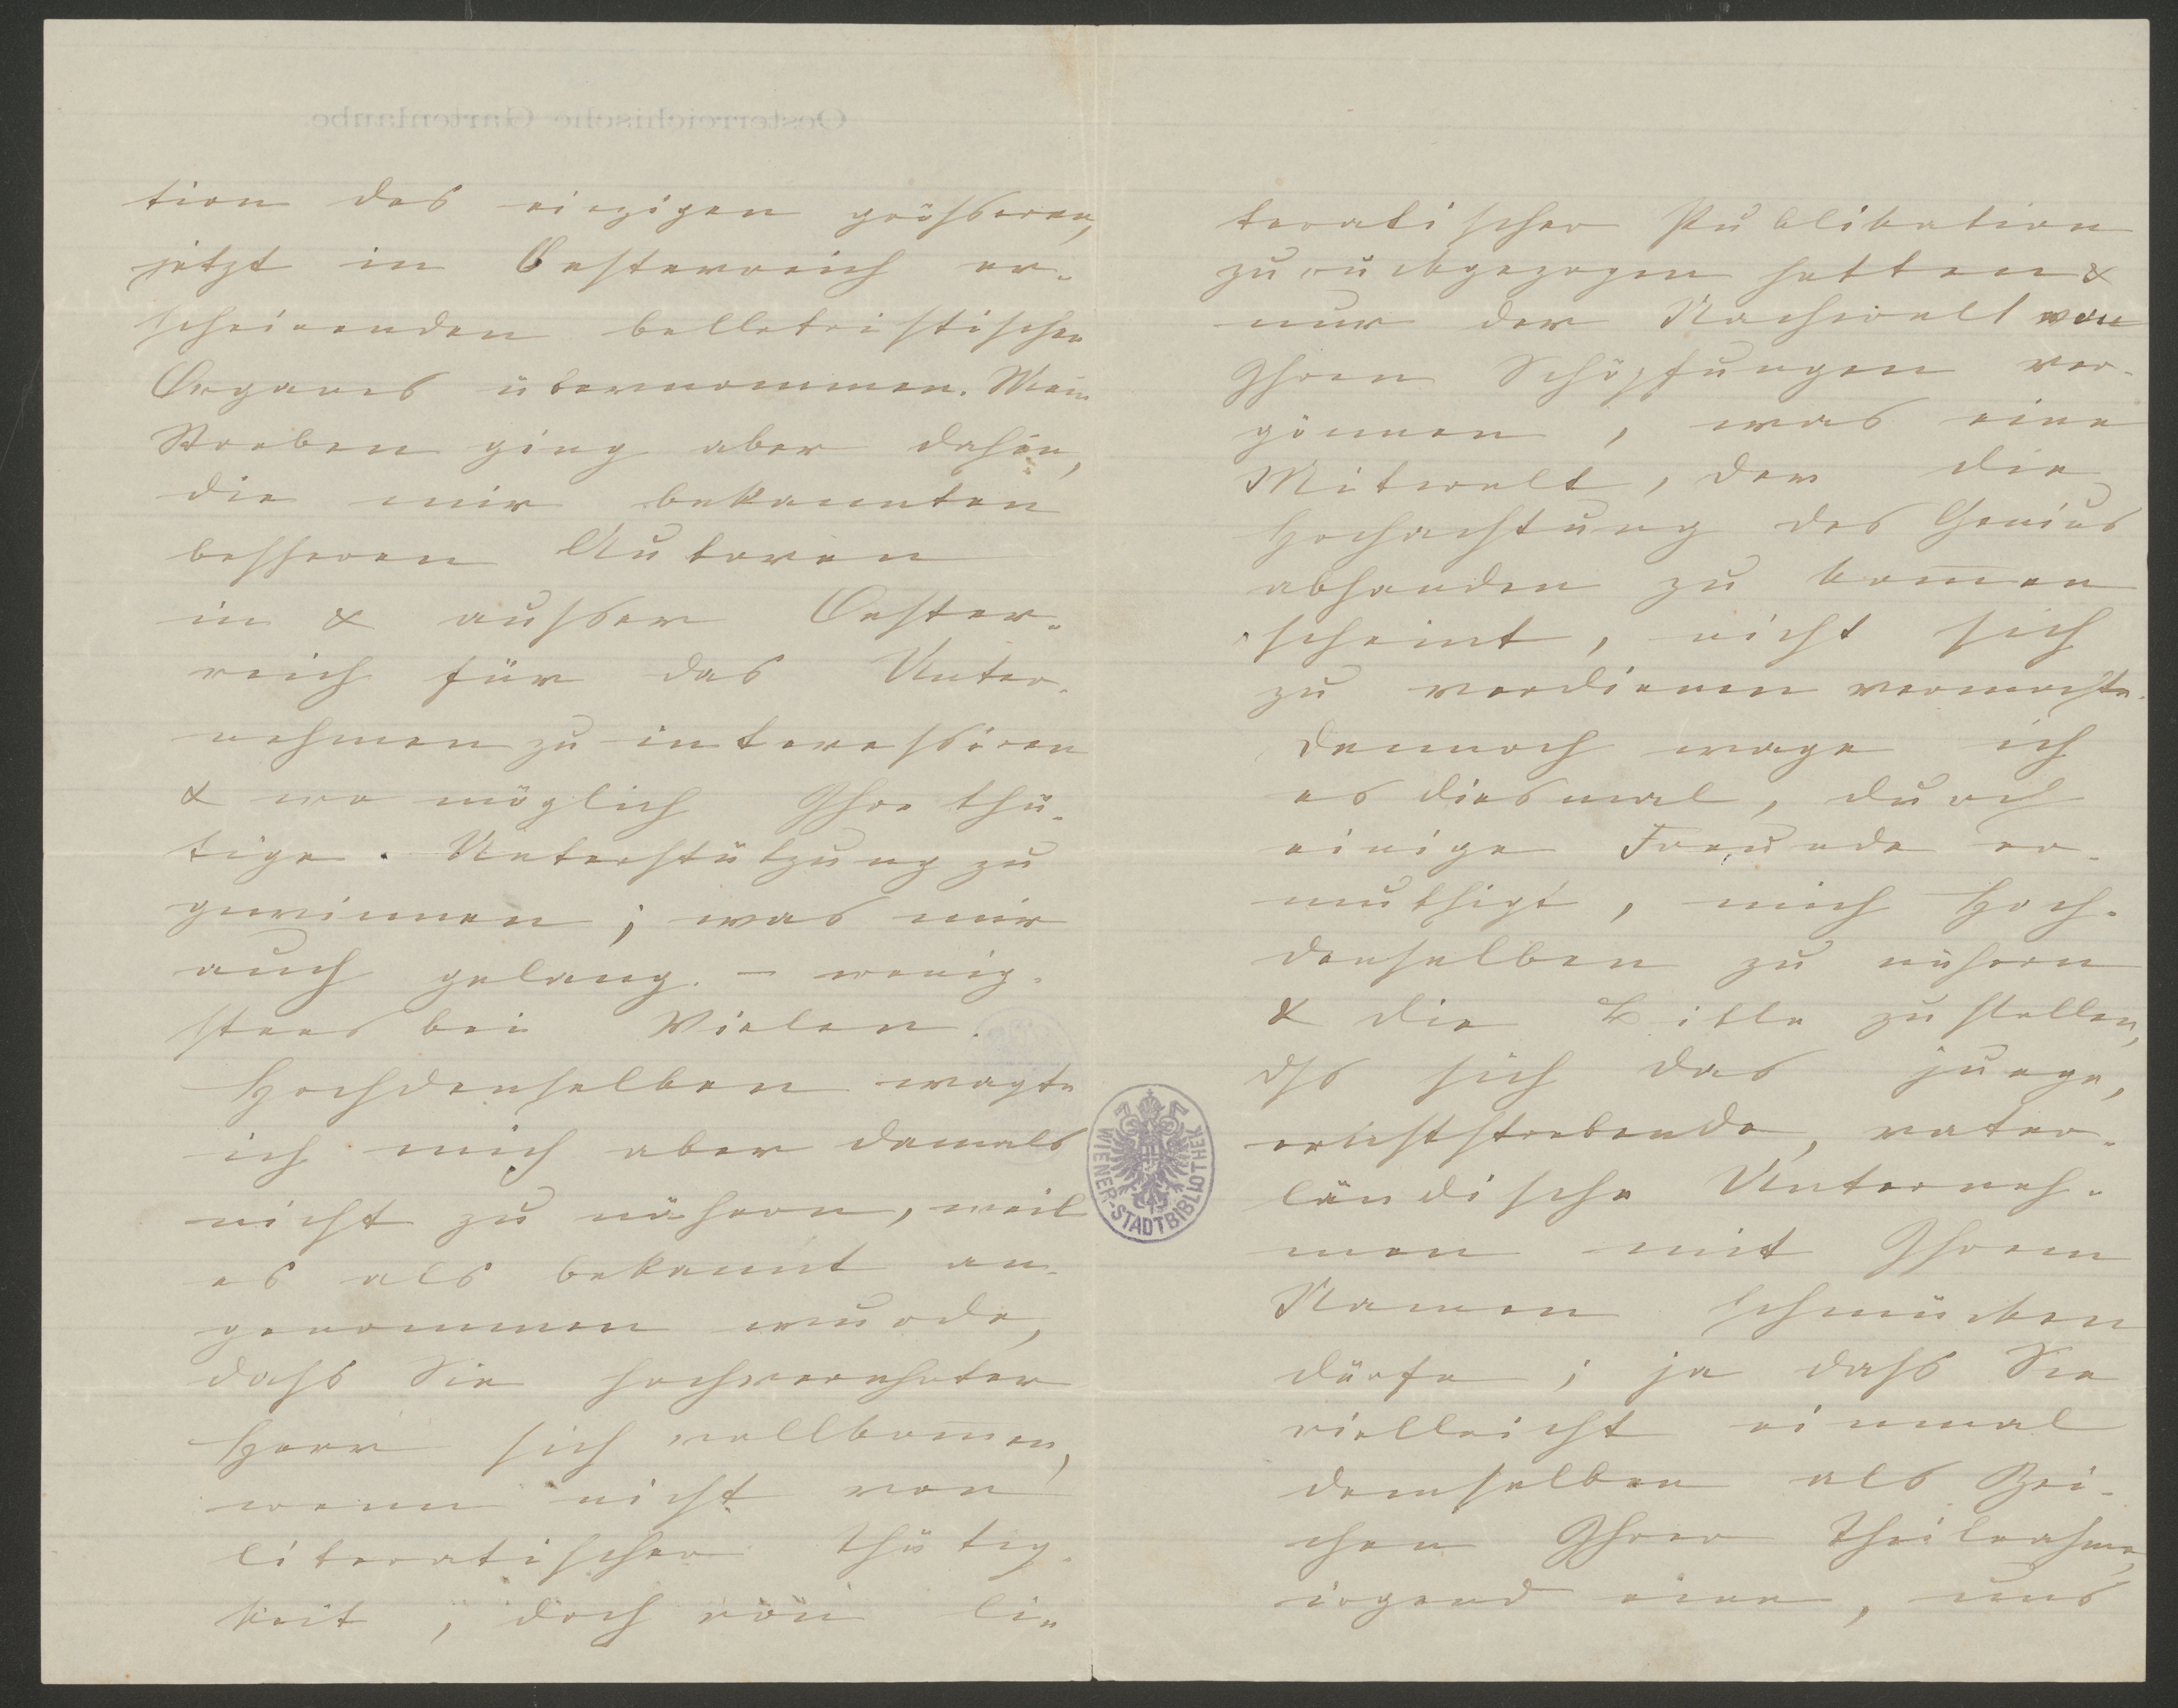 tion des einzigen grösseren,
jetzt in Oesterreich er-
scheinenden belletristischen
Organes übernommen. Mein
Streben ging aber dahin,
die mir bekannten
besseren Autoren
in & ausser Oester-
reich für das Unter-
nehmen zu interessiren
& wo möglich Ihre thä-
tige Unterstützung zu
gewinnen; was mir
auch gelang. – wenig-
stens bei Vielen.
Hochdenselben wagte
ich mich aber damals
nicht zu nähern, weil
es als bekannt an-
genommen wurde,
dass Sie hochverehrter
Herr sich vollkom̄en,
wenn nicht von
literarischer Thätig-
keit, doch von li-
terarischer Publikation
zurückgezogen hatten &
nur der Nachwelt von
Ihren Schöpfungen ver-
gönnen, was eine
Mitwelt, der die
Hochachtung des Genius
abhanden zu kom̄en
scheint, nicht sich
zu verdienen vermochte.
Dennoch wage ich
es diesmal, durch
einige Freunde er-
muthigt, mich Hoch-
denselben zu nähern
& die Bitte zu stellen,
dſs sich das junge,
ernststrebende, vater-
ländische Unterneh-
men mit Ihrem
Namen schmücken
dürfe; ja dass Sie
vielleicht einmal
demselben als Zei-
chen Ihrer Theilnahme,
irgend eine, uns
Oesterreichische Gartenlaube.
WIENER-STADTBIBLIOTHEK